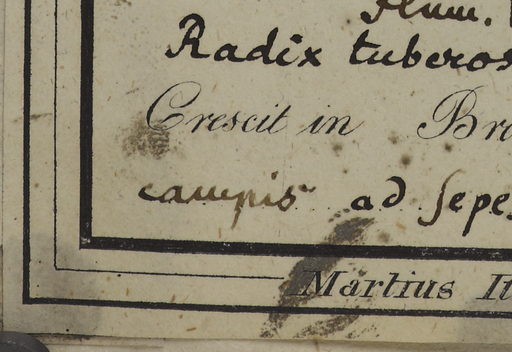 Radix tuberos
Crescit in Br
campis ad sepes
Martius It